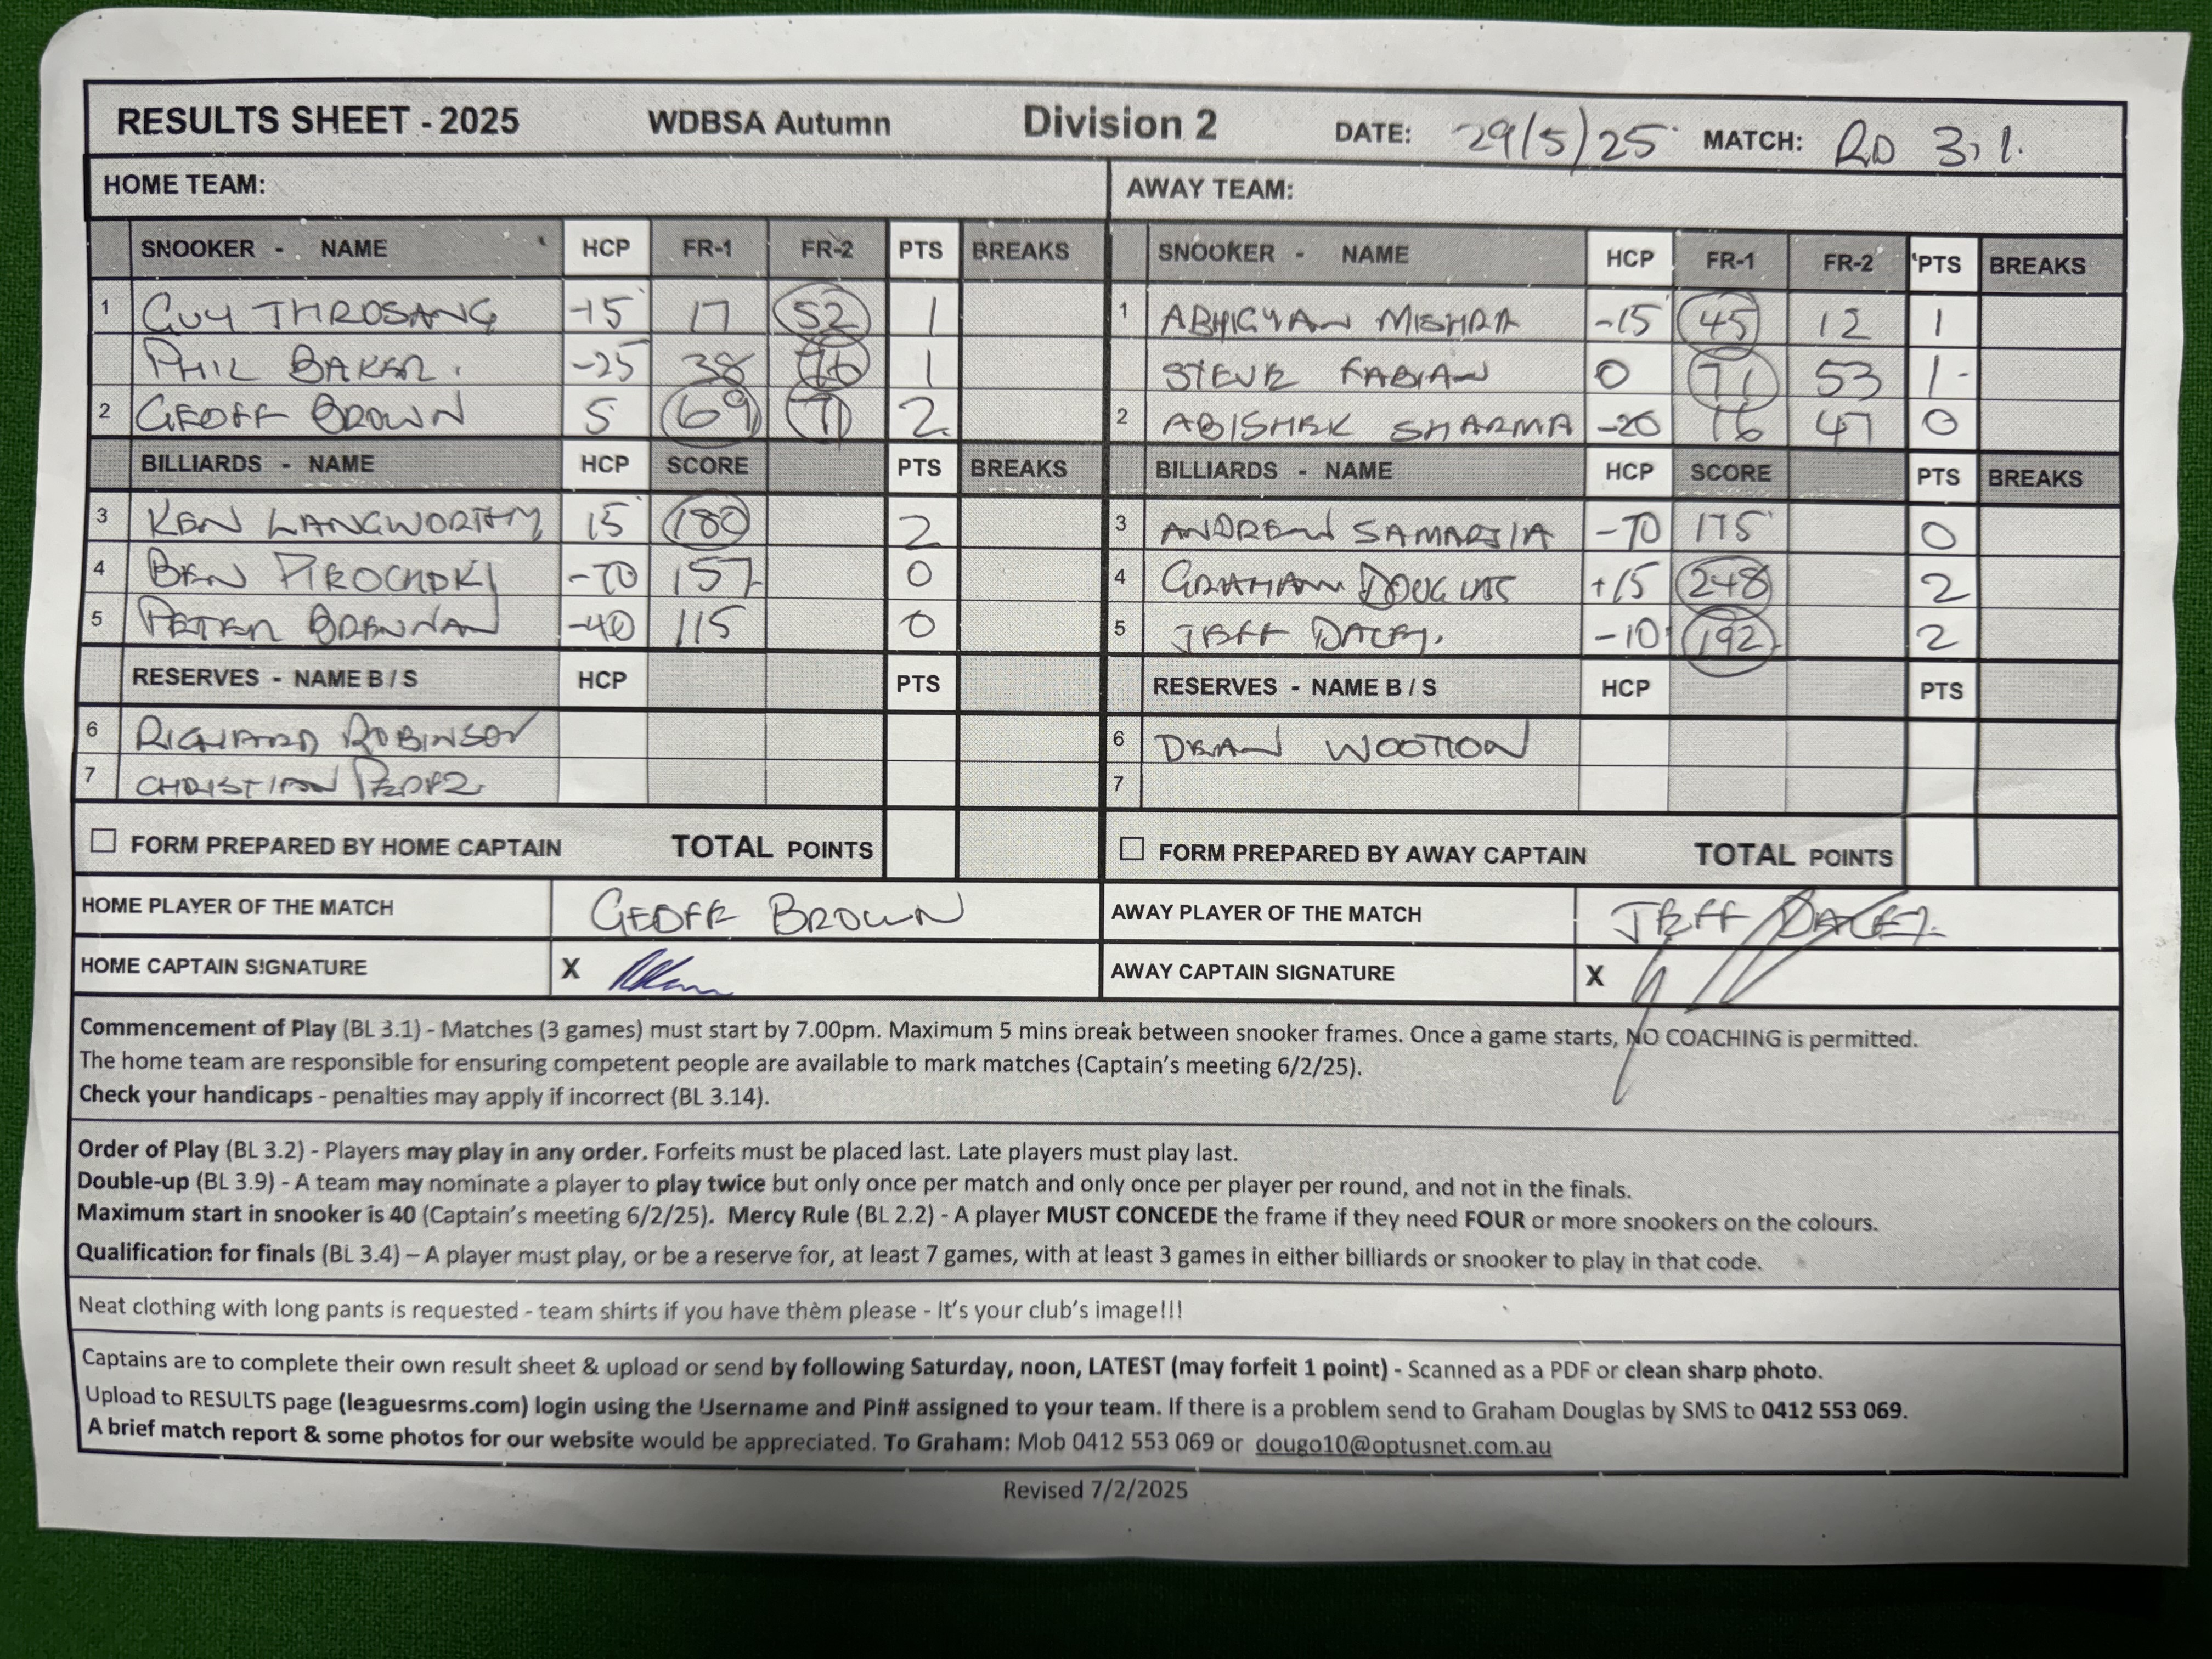 RESULTS SHEET - 2025 WDBSA Autumn Division 2 DATE: 29/5/25 MATCH: RD 3.1.
HOME TEAM: AWAY TEAM:
SNOOKER - NAME HCP FR-1 FR-2 PTS BREAKS SNOOKER - NAME HCP FR-1 FR-2 PTS BREAKS
1 GUY THROSANG -15 17 52 1 1 ABHIGYAN MISHRA -15 45 12 1
PHIL BAKER. -25 38 76 1 STEVE FABIAN 0 71 53 1
2 GEOFF BROWN 5 69 71 2 2 ABISHEK SHARMA -20 16 47 0
BILLIARDS - NAME HCP SCORE PTS BREAKS BILLIARDS - NAME HCP SCORE PTS BREAKS
3 KEN LANGWORTHY 15 180 2 3 ANDREW SAMARJIA -70 175 0
4 BEN PIROCHOKI -70 157 0 4 GRAHAM DOUGLAS +15 248 2
5 PETER BRENNAN -40 115 0 5 JEFF DACEY. -10 192 2
RESERVES - NAME B / S HCP PTS RESERVES - NAME B / S HCP PTS
6 RICHARD ROBINSON 6 DEAN WOOTTON
7 CHRISTIAN 7
FORM PREPARED BY HOME CAPTAIN TOTAL POINTS FORM PREPARED BY AWAY CAPTAIN TOTAL POINTS
HOME PLAYER OF THE MATCH GEOFF BROWN AWAY PLAYER OF THE MATCH JEFF DACEY.
HOME CAPTAIN SIGNATURE X AWAY CAPTAIN SIGNATURE X
Commencement of Play (BL 3.1) - Matches (3 games) must start by 7.00pm. Maximum 5 mins break between snooker frames. Once a game starts, NO COACHING is permitted.
The home team are responsible for ensuring competent people are available to mark matches (Captain's meeting 6/2/25).
Check your handicaps - penalties may apply if incorrect (BL 3.14).
Order of Play (BL 3.2) - Players may play in any order. Forfeits must be placed last. Late players must play last.
Double-up (BL 3.9) - A team may nominate a player to play twice but only once per match and only once per player per round, and not in the finals.
Maximum start in snooker is 40 (Captain's meeting 6/2/25). Mercy Rule (BL 2.2) - A player MUST CONCEDE the frame if they need FOUR or more snookers on the colours.
Qualification for finals (BL 3.4) – A player must play, or be a reserve for, at least 7 games, with at least 3 games in either billiards or snooker to play in that code.
Neat clothing with long pants is requested - team shirts if you have them please - It's your club's image!!!
Captains are to complete their own result sheet & upload or send by following Saturday, noon, LATEST (may forfeit 1 point) - Scanned as a PDF or clean sharp photo.
Upload to RESULTS page (leaguesrms.com) login using the Username and Pin# assigned to your team. If there is a problem send to Graham Douglas by SMS to 0412 553 069.
A brief match report & some photos for our website would be appreciated. To Graham: Mob 0412 553 069 or dougo10@optusnet.com.au
Revised 7/2/2025